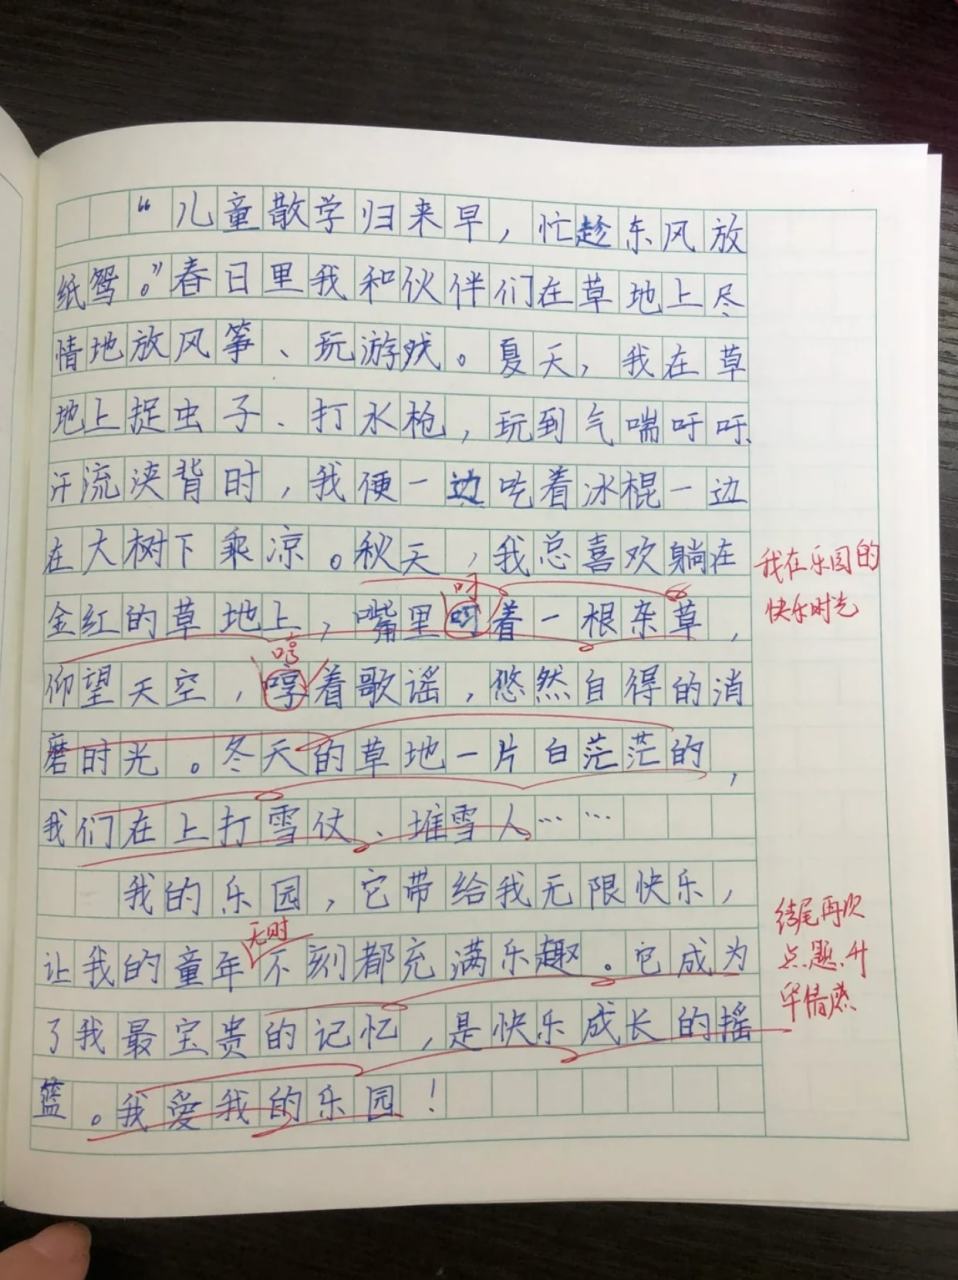 “儿童散学归来早，忙趁东风放
纸鸢。”春日里我和伙伴们在草地上尽
情地放风筝、玩游戏。夏天，我在草
地上捉虫子、打水枪，玩到气喘吁吁、
汗流浃背时，我便一边吃着冰棍一边
在大树下乘凉。秋天，我总喜欢躺在
我在乐园的
快乐时光
叼
金红的草地上，嘴里叼着一根杂草，
哼
仰望天空，哼着歌谣，悠然自得的消
磨时光。冬天的草地一片白茫茫的，
我们在上打雪仗、堆雪人……
我的乐园，它带给我无限快乐，
无时
让我的童年不刻都充满乐趣。它成为
了我最宝贵的记忆，是快乐成长的摇
篮。我爱我的乐园！
结尾再次
点题，升
华情感